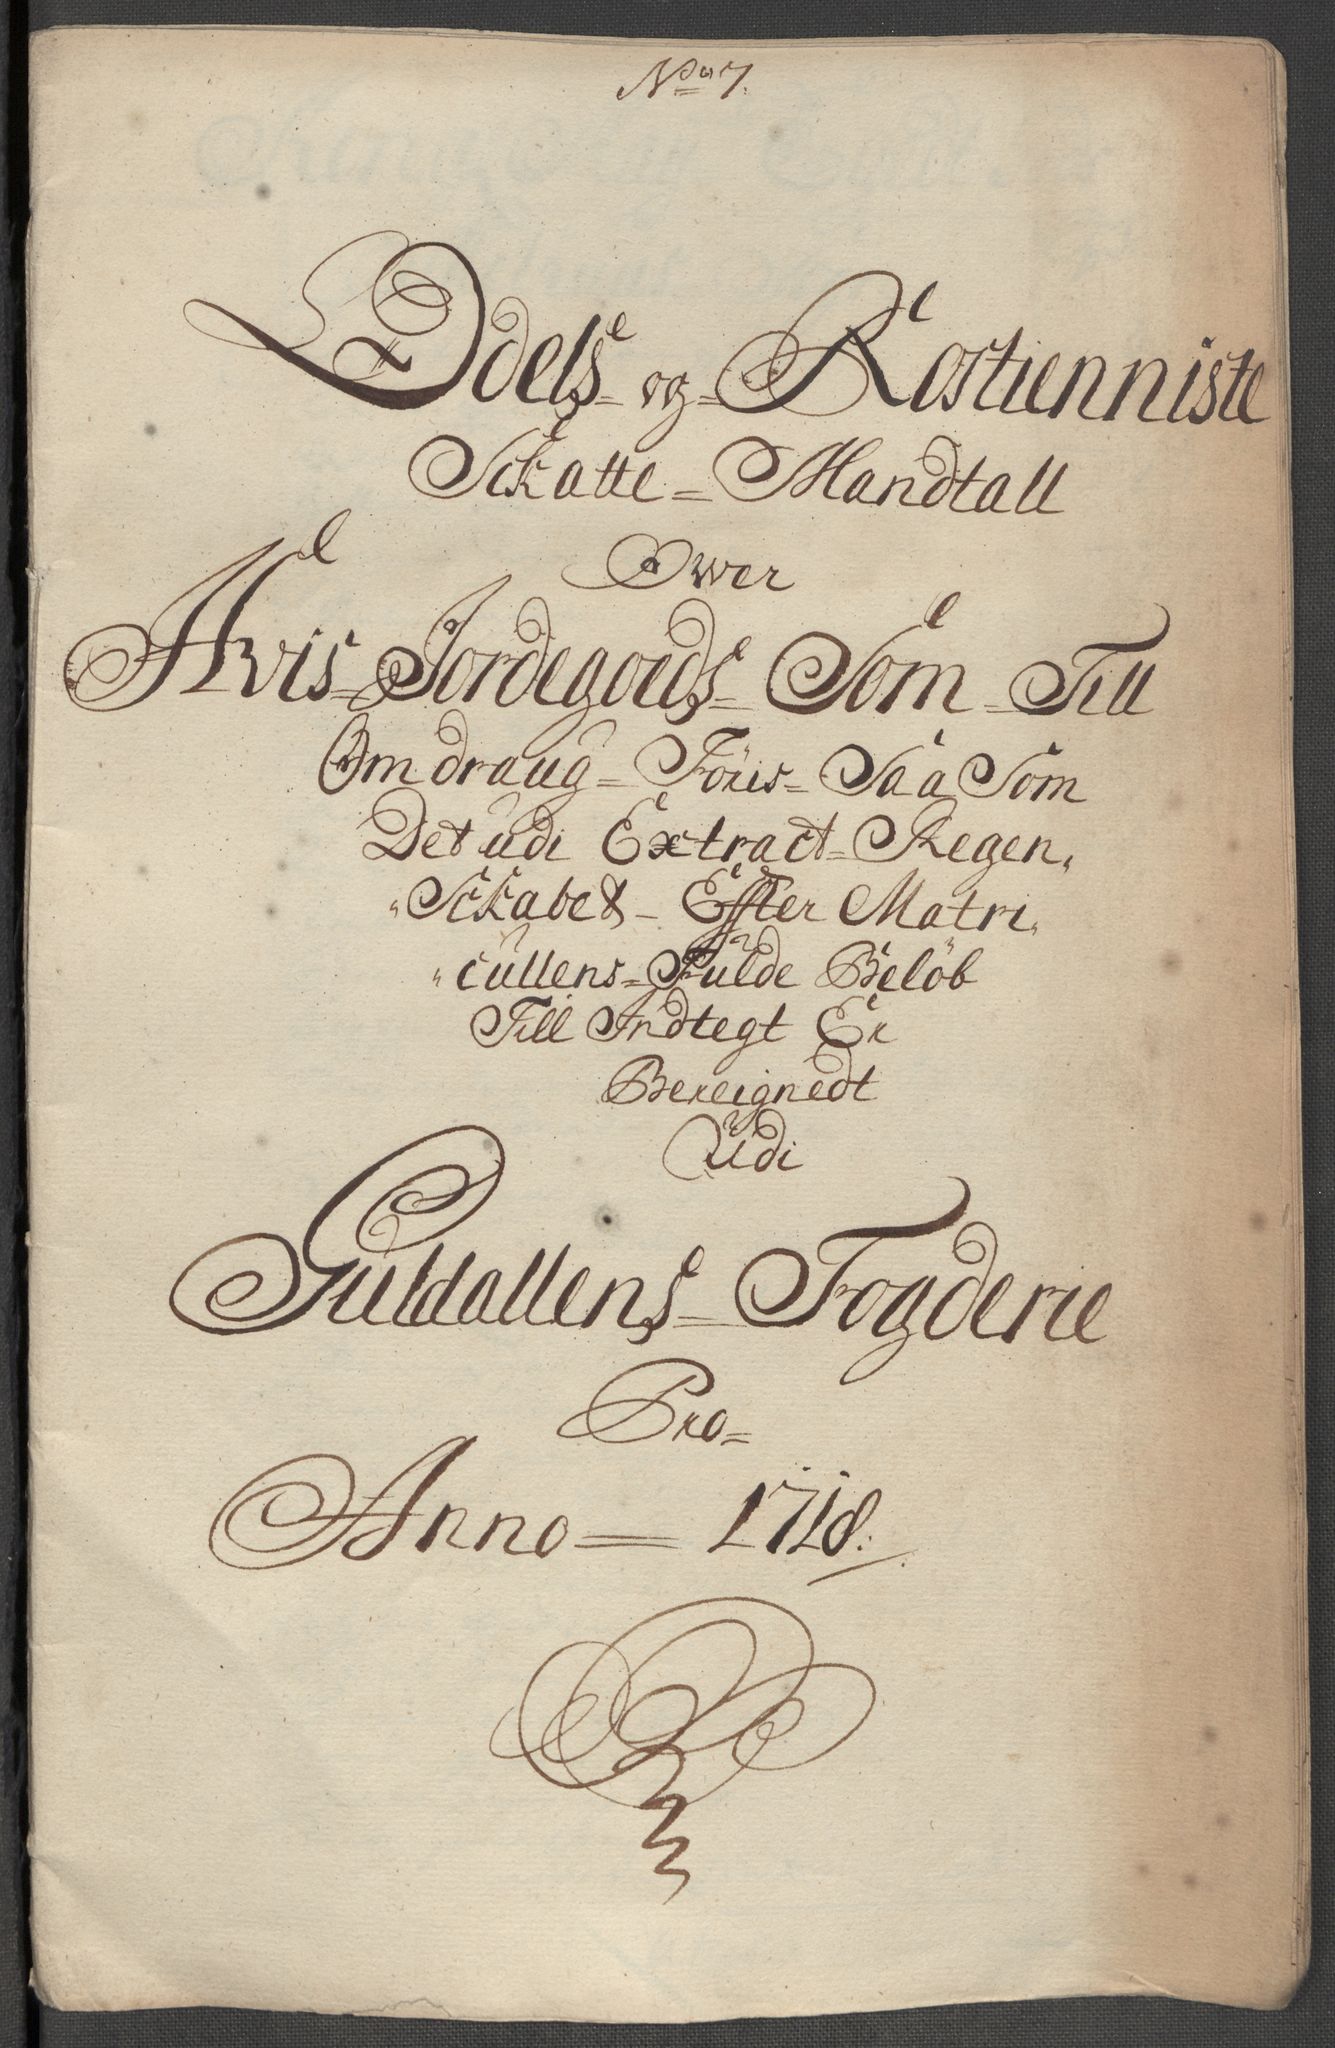 No 7.
Odels og Rostienniste
Schatte Mandtall
Ower
Hvis Jordegoeds Som Till
Omdraug Föris Saa Som
Det udi Extract Regen,
"Schabet Effter Matri"
"cullens Fulde Belöb
Till Indtegt Er
Bereignedt
Udi
Guldallens Fogderie
Pro
Anno 1718.